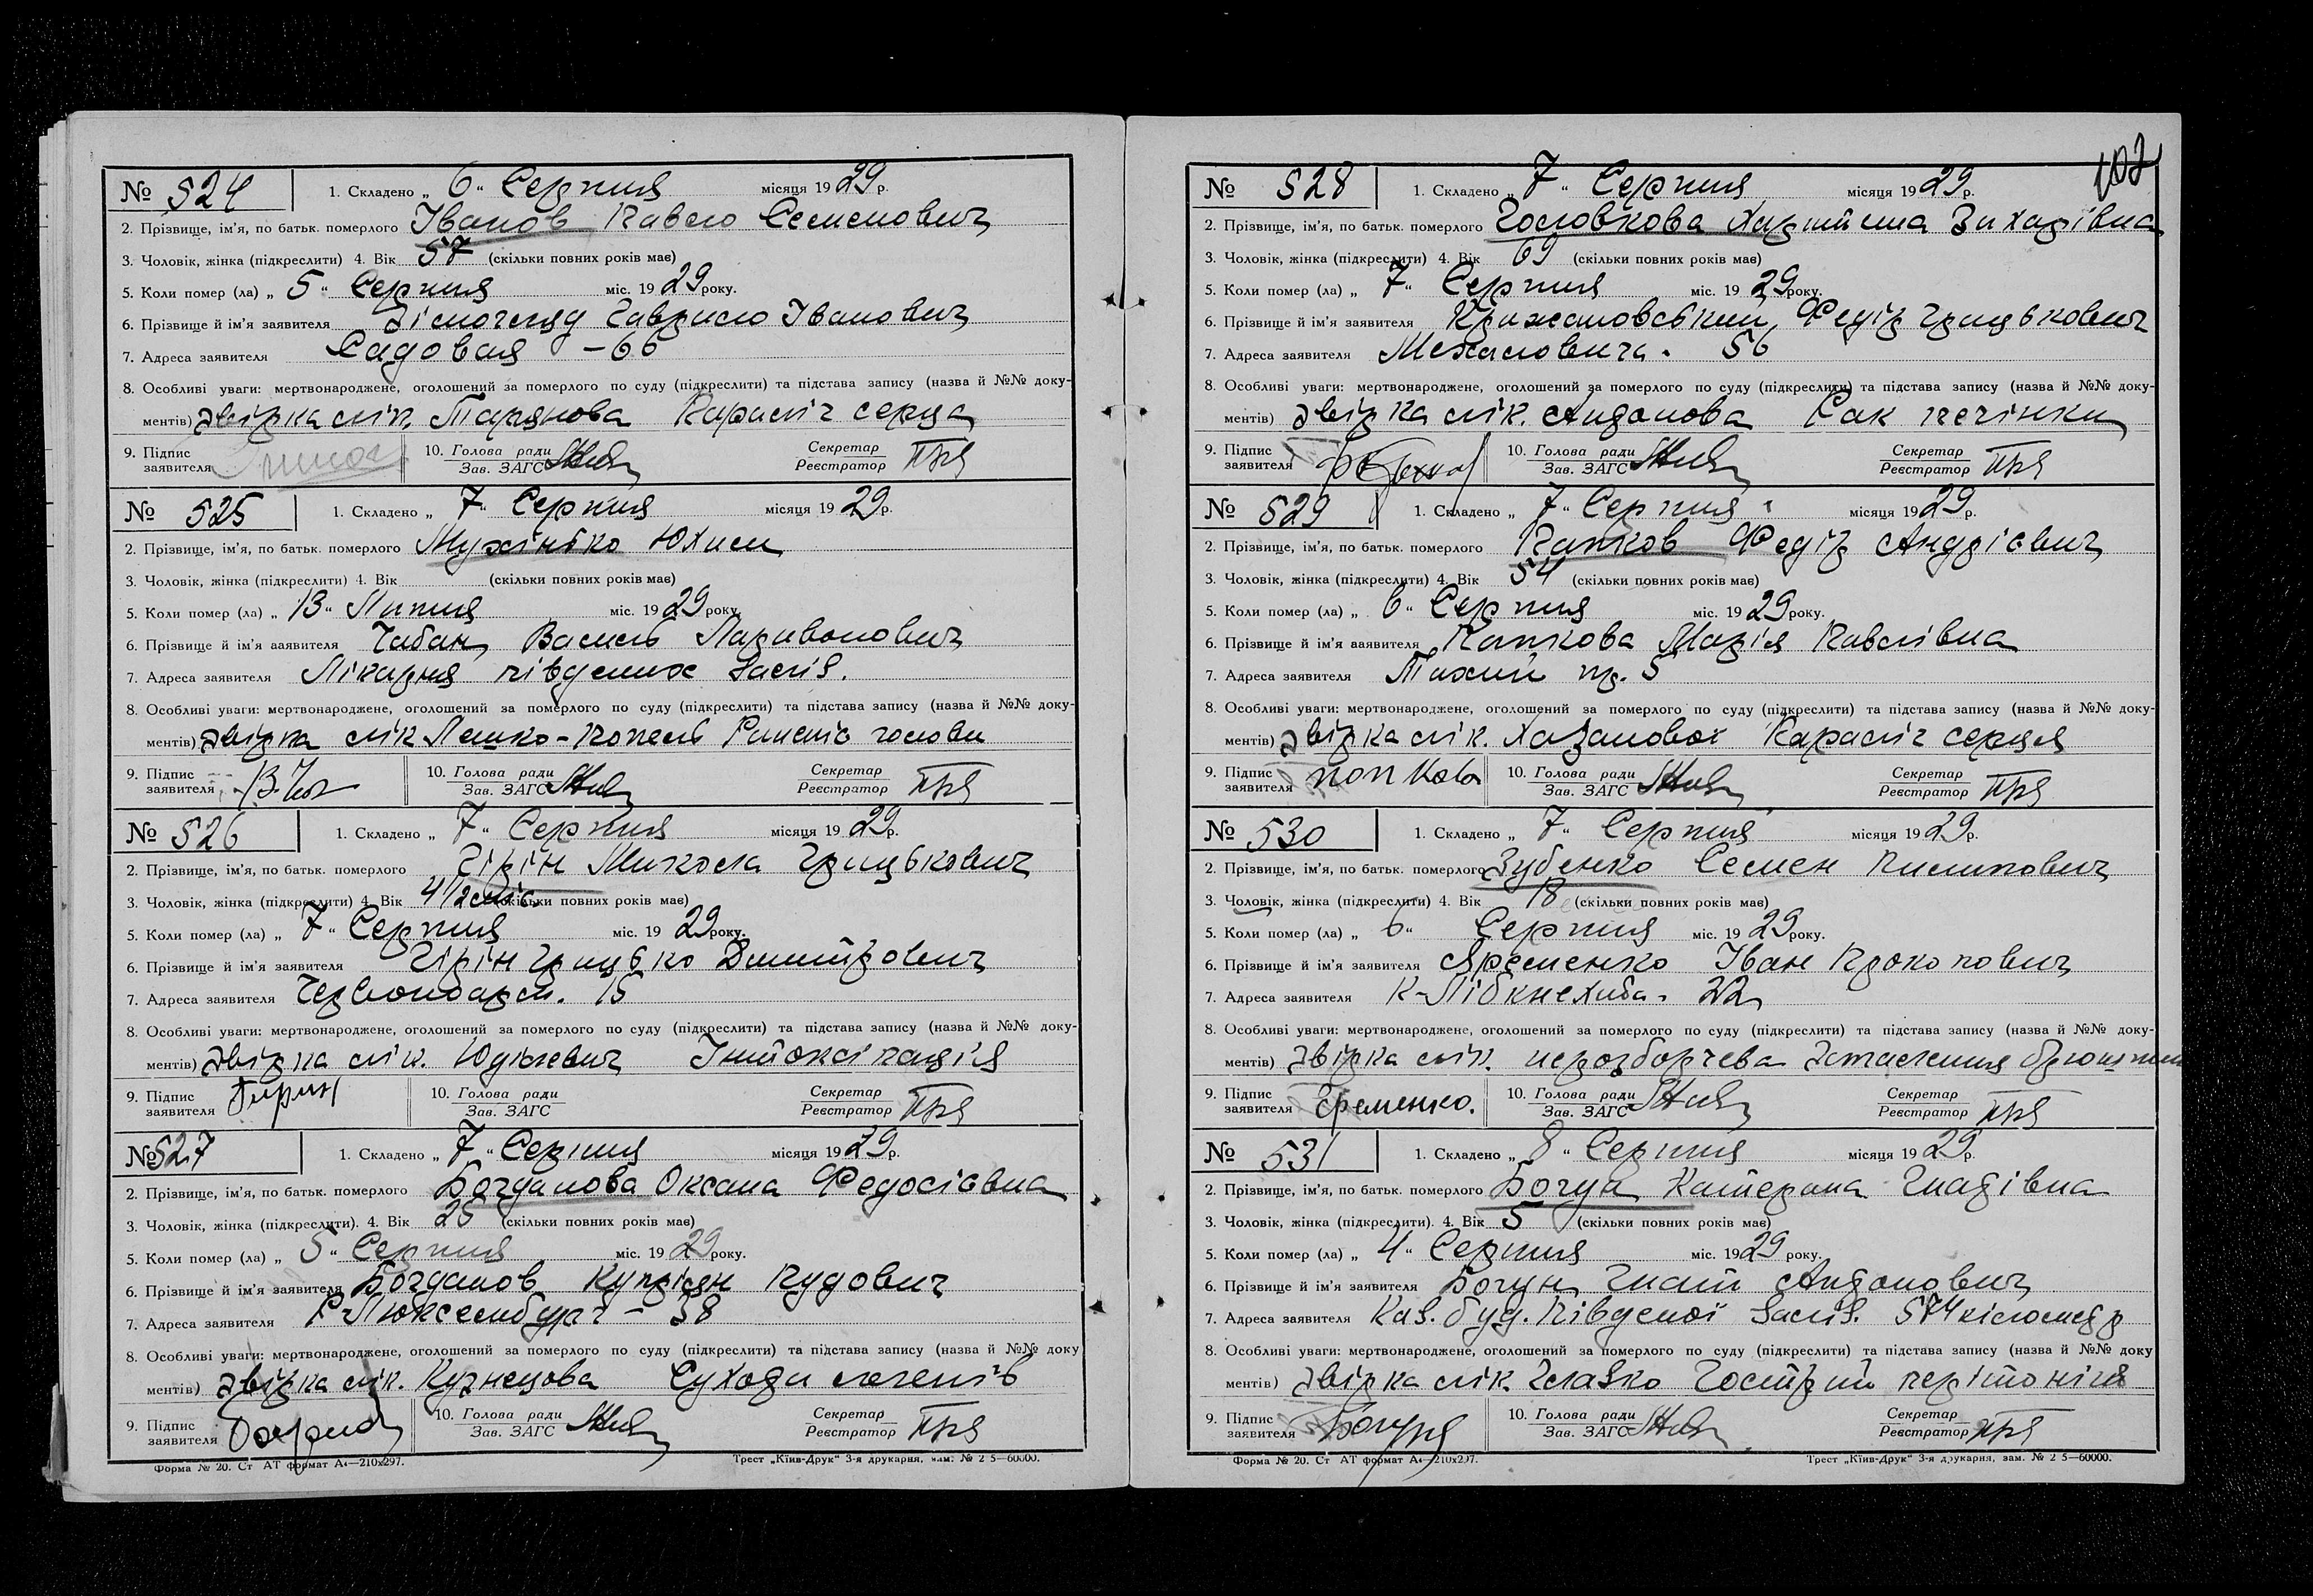 № 524 1. Складено „ 6 “ Серпня місяця 1929 р.
2. Прізвище, ім'я, по батьк. померлого Іванов Павло Семенович
3. Чоловік, жінка (підкреслити) 4. Вік 57 (скільки повних років має)
5. Коли помер (ла) „ 5 “ Серпня міс. 1929 року.
6. Прізвище й ім'я заявителя Гаврило Іванович
7. Адреса заявителя Садовая – 66
8. Особливі уваги: мертвонароджене, оголошений за померлого по суду (підкреслити) та підстава запису (назва й №№ доку-
ментів) двірка лік. Параліч серца
9. Підпис заявителя 10. Голова ради Зав. ЗАГС Секретар Реєстратор
№ 525 1. Складено „ 7 “ Серпня місяця 1929 р.
2. Прізвище, ім'я, по батьк. померлого Юхим
3. Чоловік, жінка (підкреслити) 4. Вік (скільки повних років має)
5. Коли помер (ла) „ 13 “ Липня міс. 1929 року.
6. Прізвище й ім'я заявителя Чабан Василь Ларивонович
7. Адреса заявителя Лікарня південих заліз.
8. Особливі уваги: мертвонароджене, оголошений за померлого по суду (підкреслити) та підстава запису (назва й №№ доку-
ментів) двірка лік Лешко-Попель голови
9. Підпис заявителя 10. Голова ради Зав. ЗАГС Секретар Реєстратор
№ 526 1. Складено „ 7 “ Серпня місяця 1929 р.
2. Прізвище, ім'я, по батьк. померлого Гірін Микола Грицькович
3. Чоловік, жінка (підкреслити) 4. Вік 4 1/2 міс (скільки повних років має)
5. Коли помер (ла) „ 7 “ Серпня міс. 1929 року.
6. Прізвище й ім'я заявителя Гірін Грицько Дмитрович
7. Адреса заявителя 15
8. Особливі уваги: мертвонароджене, оголошений за померлого по суду (підкреслити) та підстава запису (назва й №№ доку-
ментів) двірка лік. Юдікевич Інтоксікація
9. Підпис заявителя Гирин 10. Голова ради Зав. ЗАГС Секретар Реєстратор
№ 527 1. Складено „ 7 “ Серпня місяця 1929 р.
2. Прізвище, ім'я, по батьк. померлого Богданова Оксана Федосієвна
3. Чоловік, жінка (підкреслити). 4. Вік 25 (скільки повних років має)
5. Коли помер (ла) „ 5 “ Серпня міс. 1929 року.
6. Прізвище й ім'я заявителя Богданов Купріян
7. Адреса заявителя Р-Люксембург – 38
8. Особливі уваги: мертвонароджене, оголошений за померлого по суду (підкреслити) та підстава запису (назва й №№ доку
ментів) двірка лік. Кузнецова Сухоти легенів
9. Підпис заявителя 10. Голова ради Зав. ЗАГС Секретар Реєстратор
Форма № 20. Ст АТ формат А4—210х297. Трест „Київ-Друк“ 3-я друкарня, зам. № 2 5—60000.
102
№ 528 1. Складено „ 7 “ Серпня місяця 1929 р.
2. Прізвище, ім'я, по батьк. померлого Головкова Захарівна
3. Чоловік, жінка (підкреслити) 4. Вік 69 (скільки повних років має)
5. Коли помер (ла) „ 7 “ Серпня міс. 1929 року.
6. Прізвище й ім'я заявителя Крижановський Федір Грицькович
7. Адреса заявителя 56
8. Особливі уваги: мертвонароджене, оголошений за померлого по суду (підкреслити) та підстава запису (назва й №№ доку-
ментів) двірка лік. Андонова Рак печінки
9. Підпис заявителя 10. Голова ради Зав. ЗАГС Секретар Реєстратор
№ 529 1. Складено „ 7 “ Серпня місяця 1929 р.
2. Прізвище, ім'я, по батьк. померлого Папков Федір Андрієвич
3. Чоловік, жінка (підкреслити) 4. Вік 54 (скільки повних років має)
5. Коли помер (ла) „ 6 “ Серпня міс. 1929 року.
6. Прізвище й ім'я заявителя Папкова Марія Павлівна
7. Адреса заявителя Тихий пр. 5
8. Особливі уваги: мертвонароджене, оголошений за померлого по суду (підкреслити) та підстава запису (назва й №№ доку-
ментів) двірка лік. Хазановоі Параліч серця
9. Підпис заявителя попкова 10. Голова ради Зав. ЗАГС Секретар Реєстратор
№ 530 1. Складено „ 7 “ Серпня місяця 1929 р.
2. Прізвище, ім'я, по батьк. померлого Зубенко Семен Пилипович
3. Чоловік, жінка (підкреслити) 4. Вік 18 (скільки повних років має)
5. Коли помер (ла) „ 6 “ Серпня міс. 1929 року.
6. Прізвище й ім'я заявителя Яременко Іван Прокопович
7. Адреса заявителя К-Лібкнехта. 22
8. Особливі уваги: мертвонароджене, оголошений за померлого по суду (підкреслити) та підстава запису (назва й №№ доку-
ментів) двірка лік. нерозборчева
9. Підпис заявителя Єременко. 10. Голова ради Зав. ЗАГС Секретар Реєстратор
№ 531 1. Складено „ 8 “ Серпня місяця 1929 р.
2. Прізвище, ім'я, по батьк. померлого Богун Катерина Гнатівна
3. Чоловік, жінка (підкреслити). 4. Вік 5 (скільки повних років має)
5. Коли помер (ла) „ 4 “ Серпня міс. 1929 року.
6. Прізвище й ім'я заявителя Богун Гнат Андонович
7. Адреса заявителя Каз. буд. Південоі заліз. 574 кілометр
8. Особливі уваги: мертвонароджене, оголошений за померлого по суду (підкреслити) та підстава запису (назва й №№ доку
ментів) двірка лік. Главко Гострий перітоніт
9. Підпис заявителя Богун 10. Голова ради Зав. ЗАГС Секретар Реєстратор
Форма № 20. Ст АТ формат А4—210х297. Трест „Київ-Друк“ 3-я друкарня, зам. № 2 5—60000.